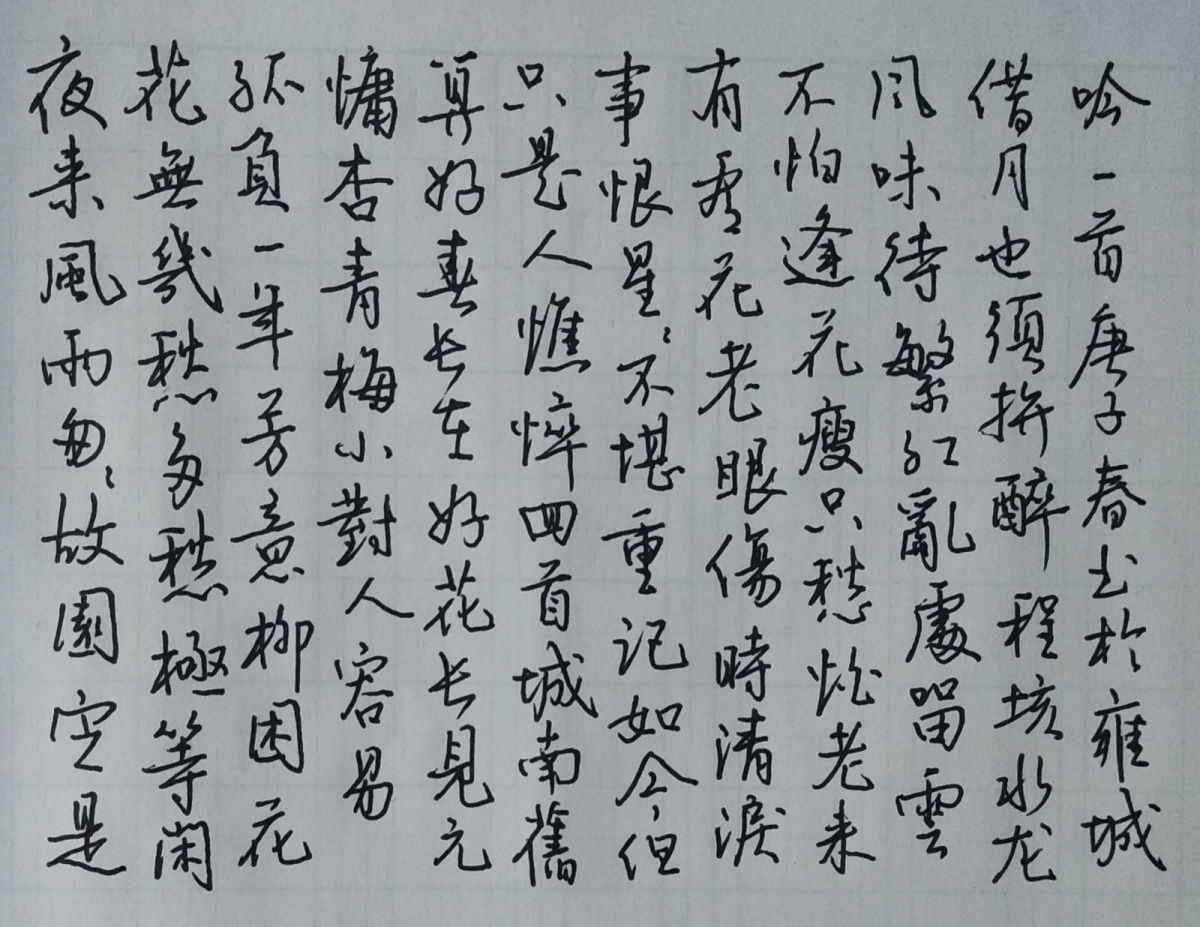 夜来風雨匆〻故園定是
花無幾愁多愁極等闲
孤負一年芳意柳困花
慵杏青梅小對人容易
算好春长在好花长見元
只是人憔悴回首城南舊
事恨星〻不堪重记如今但
有看花老眼傷時清淚
不怕逢花瘦只愁怕老来
风味待繁红亂處留雲
借月也须拚醉程垓水龙
吟一首庚子春书於雍城